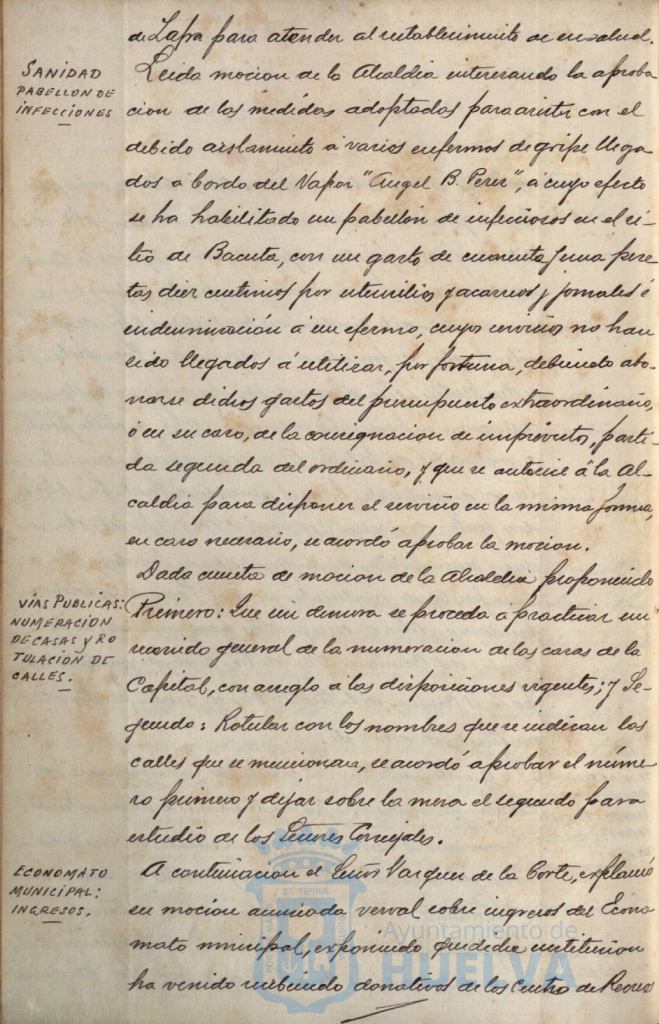 de Lapa para atender al restablecimiento de su salud.
SANIDAD
PABELLON DE
INFECCIONES
Leida mocion de la Alcaldia interesando la aproba
cion de las medidas adoptadas para asistir con el
debido aislamiento á varios enfermos de gripe llega
dos a bordo del Vapor "Angel B. Perez", á cuyo efecto
se ha habilitado un pabellón de infecciosos en el si-
tio de Bacuta, con un gasto de cuarenta y una pese
tas diez centimos por utensilios y acarreos y jornales é
indemnización á un efermo, cuyos servicios no han
sido llegados á utilizar, por fortuna, debiendo abo-
narse dichos gastos del presupuesto extraordinario,
ó en su caso, de la consignacion de imprevistos, parti-
da segunda del ordinario, y que se autorice á la Al-
caldia para disponer el servicio en la misma forma,
en caso necesario, se acordó aprobar la mocion.
VIAS PUBLICAS:
NUMERACION
DE CASAS Y RO
TULACION DE
CALLES.
Dada cuenta de mocion de la Alcaldia proponiendo
Primero: Que sin demora se proceda á practicar un
recorrido general de la numeracion de las casas de la
Capital, con arreglo á las disposiciones vigentes; y Se-
gundo: Rotular con los nombres que se indican las
calles que se mencionan, se acordó aprobar el núme-
ro primero y dejar sobre la mesa el segundo para
estudio de los Señores Concejales.
ECONOMATO
MUNICIPAL:
INGRESOS.
A continuacion el Señor Vazquez de la Corte, explanó
su mocion anunciada verval sobre ingresos del Econo
mato municipal, exponiendo que dicha institucion
ha venido recibiendo donativos de los Centros de Recreo
Ayuntamiento de
HUELVA